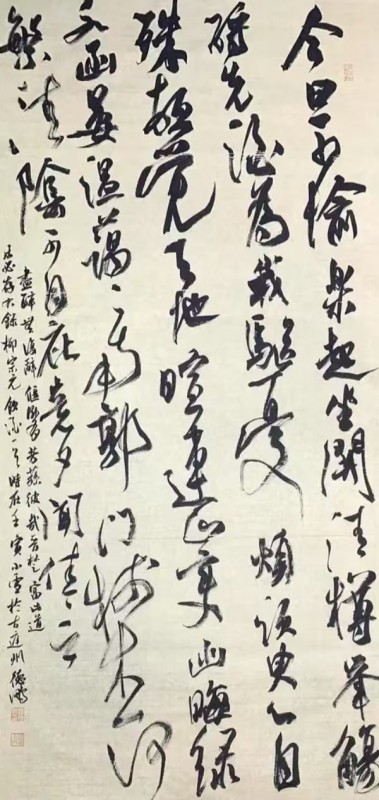 今旦少愉樂起坐開清樽舉觴
酹先酒為我驅憂煩須臾心自
殊頓覺天地暄連山變幽晦綠
水函晏溫藹〻南郭門樹木一何
繁清陰可自庇竟夕聞佳言
盡醉無復辭偃臥有芳蓀彼哉晉楚富此道
未必存右錄柳宗元飲酒一首時在壬寅小雪於古連州